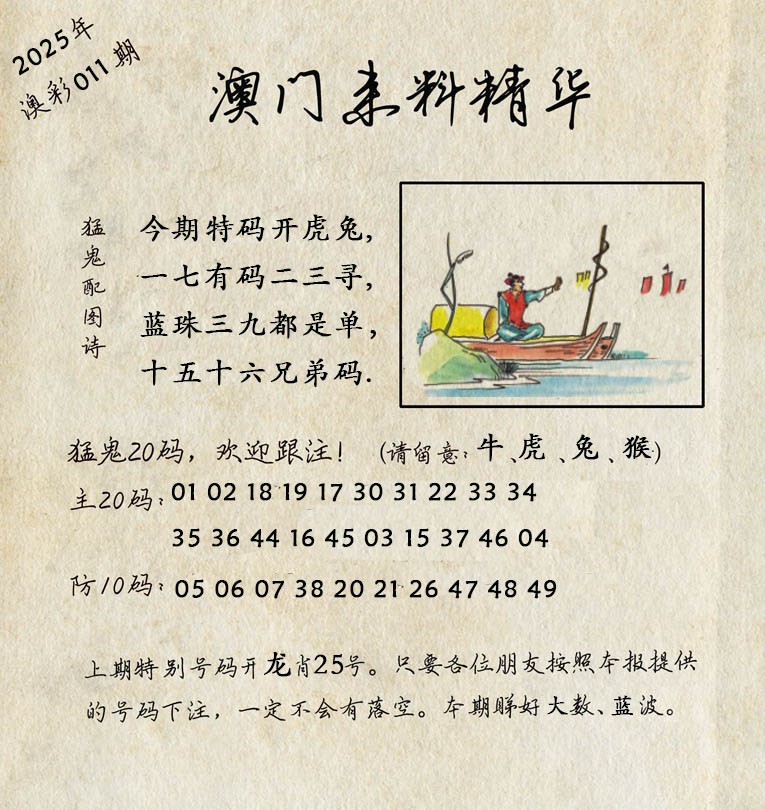 2025年
澳彩011期
澳门来料精华
猛鬼配图诗
今期特码开虎兔,
一七有码二三寻,
蓝珠三九都是单,
十五十六兄弟码.
猛鬼20码，欢迎跟注！（请留意：牛、虎、兔、猴）
主20码：01 02 18 19 17 30 31 22 33 34
35 36 44 16 45 03 15 37 46 04
防10码：05 06 07 38 20 21 26 47 48 49
上期特别号码开龙肖25号。只要各位朋友按照本报提供
的号码下注，一定不会有落空。本期睇好大数、蓝波。